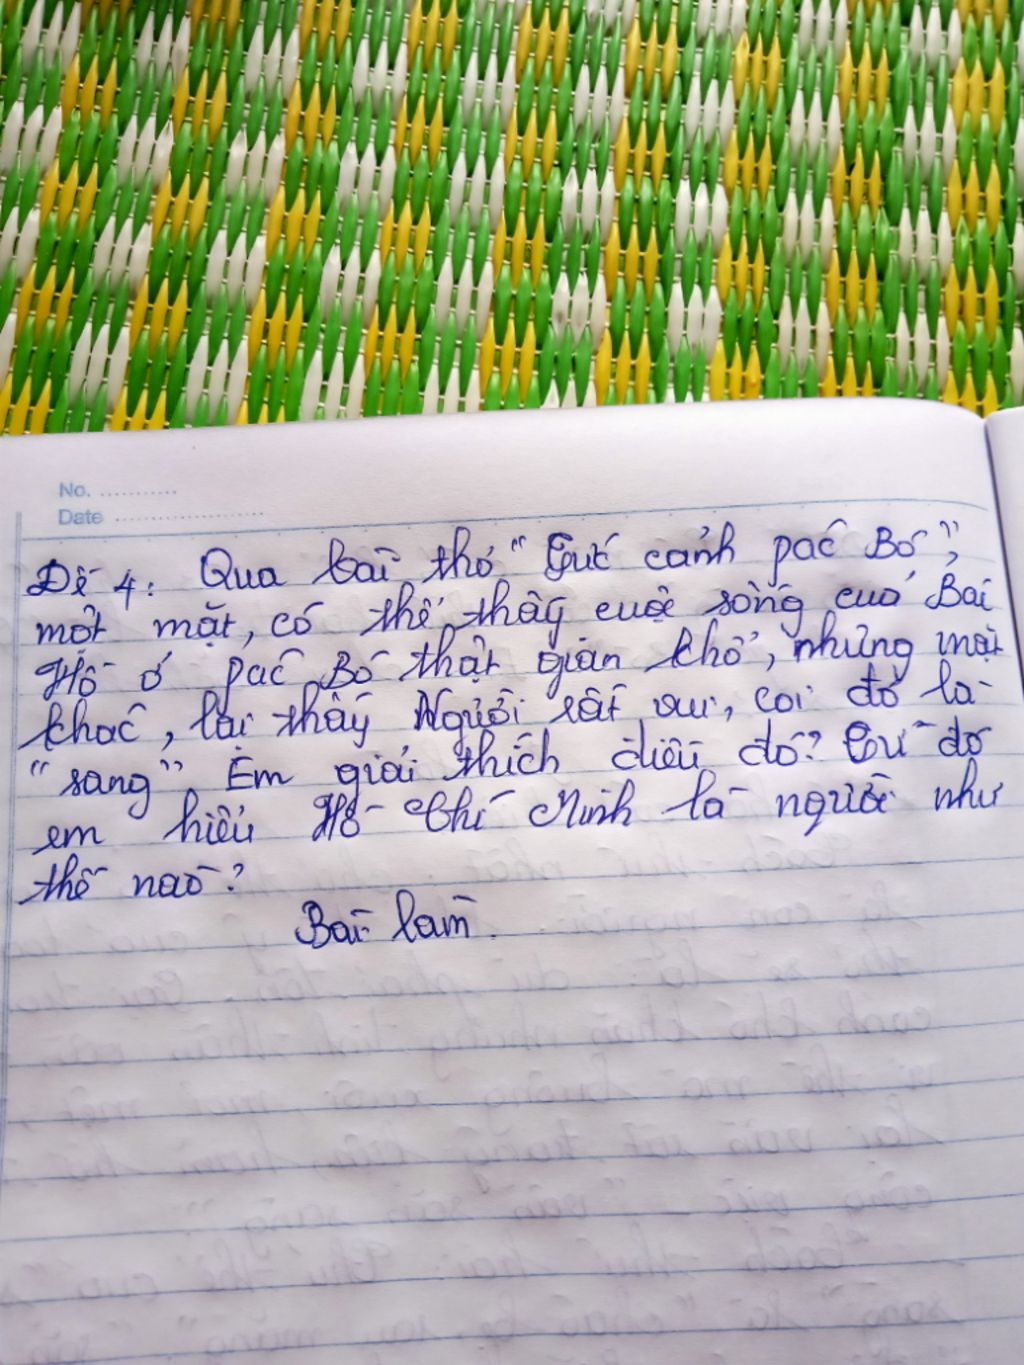 No. ...........
Date ......................
Đề 4: Qua bài thơ "Tức cảnh pác Bó",
một mặt, có thể thấy cuộc sống của Bác
Hồ ở pác Bó thật gian khổ, nhưng mặt
khác, lại thấy Người rất vui, coi đó là
"sang" Em giải thích điều đó? Từ đó
em hiểu Hồ Chí Minh là người như
thế nào?
Bài làm.